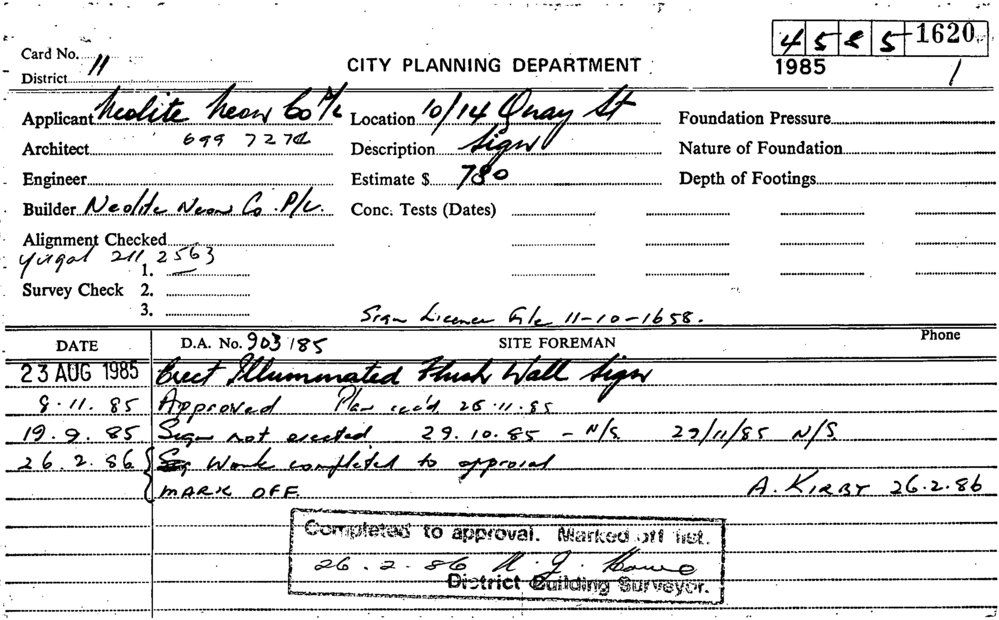 45 85 1620
1985 1
Card No. 11
District
CITY PLANNING DEPARTMENT
Applicant Neolite Neon Co P/L Location 10/14 Quay St Foundation Pressure
Architect 699 7274 Description Sign Nature of Foundation
Engineer Estimate $ 780 Depth of Footings
Builder Neolite Neon Co. P/L. Conc. Tests (Dates)
Alignment Checked
211 2563
1.
Survey Check 2.
3.
Sign Licence File 11-10-1658.
DATE D.A. No. 903/85 SITE FOREMAN Phone
23 AUG 1985 Erect Illuminated Flush Wall Sign
8.11.85 Approved Plan rec'd 26.11.85
19.9.85 Sign not erected 29.10.85 - N/S. 29/11/85 N/S
26.2.86 Work completed to approval
MARK OFF. A. KIRBY 26.2.86
Completed to approval. Marked off list.
26.2.86
District Building Surveyor.